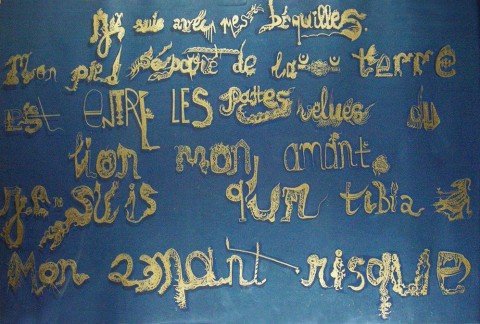 Je suis avec mes béquilles.
Mon pied séparé de la terre
est ENTRE LES pattes velues du
lion mon amant.
Je suis qu'un tibia
Mon amant risque